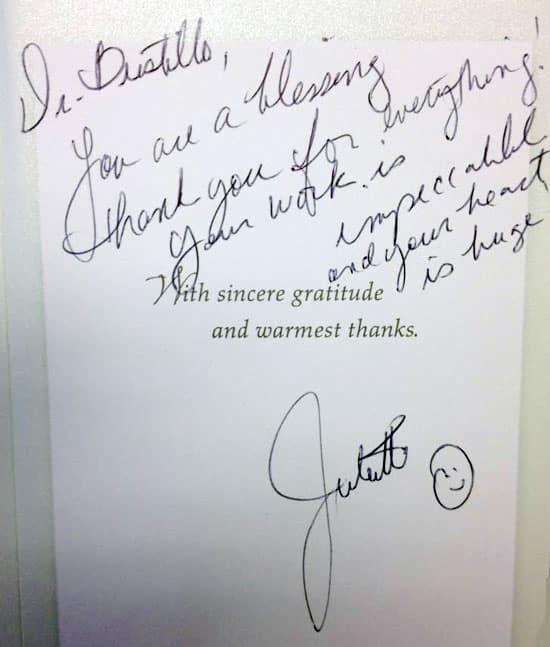 Dr. Bustillo,
You are a blessing
Thank you for everything!
your work is
impeccable
and your heart
is huge
With sincere gratitude
and warmest thanks.